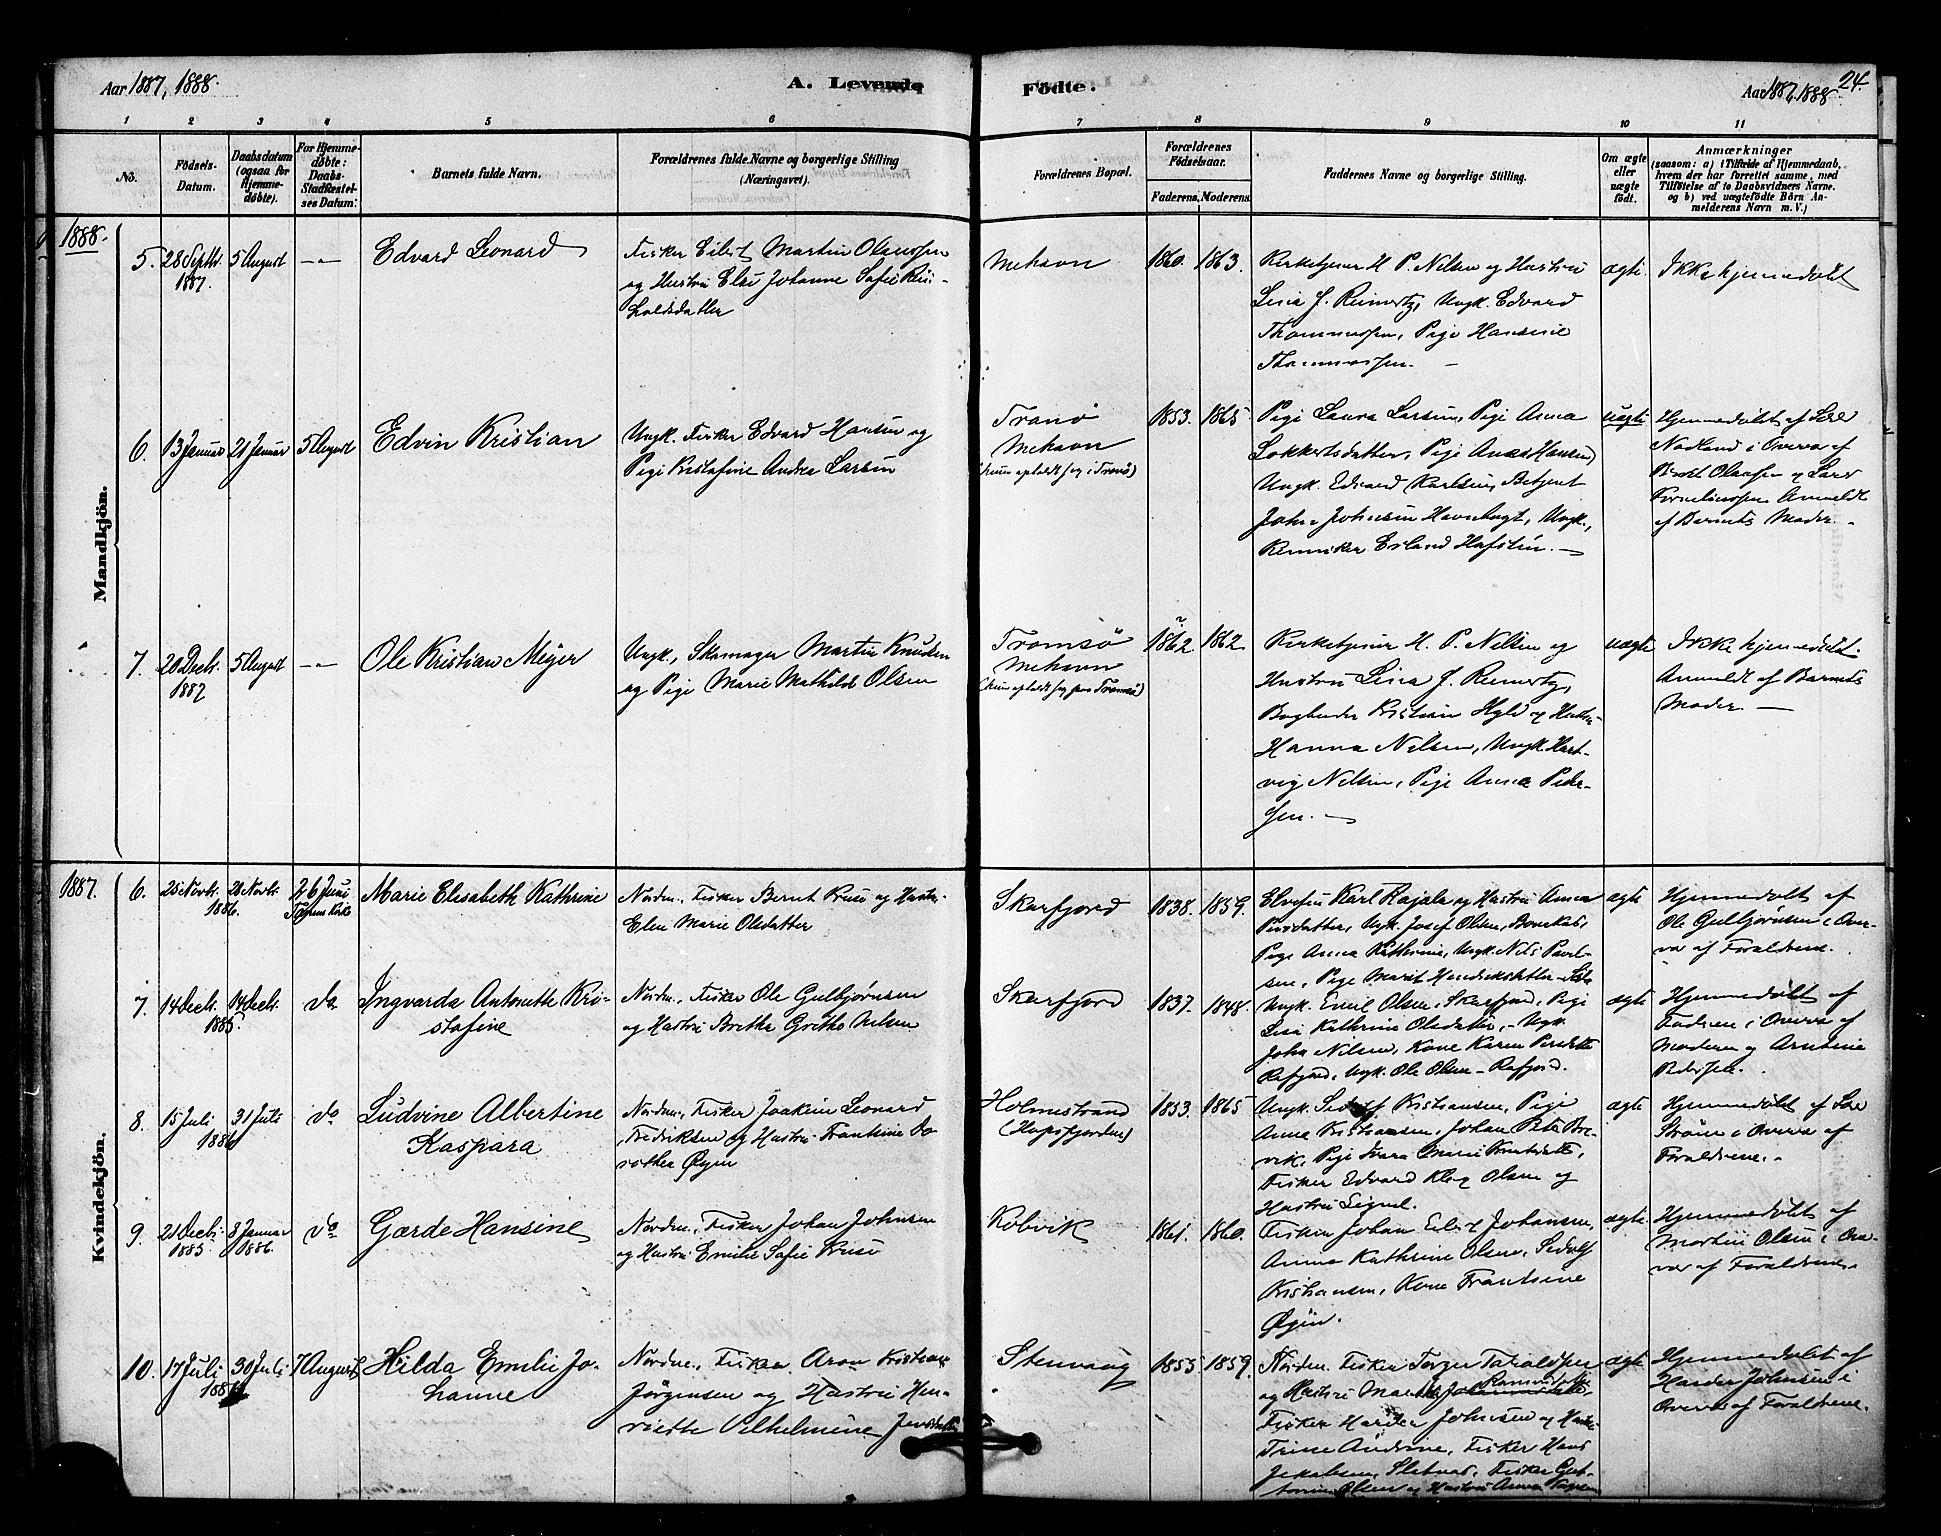 Aar 1887, 1888.
A. Levende Fødte.
Aar 1887, 1888.
24.
1
2
3
4
5
6
7
8
9
10
11
No.
Fødsels-
Datum.
Daabsdatum
(ogsaa for
Hjemme-
døbte).
For Hjemme-
døbte:
Daabs-
Stadfæstel-
ses Datum:
Barnets fulde Navn.
Forældrenes fulde Navne og borgerlige Stilling
(Næringsvei).
Forældrenes Bopæl.
Forældrenes
Fødselsaar.
Faderens. Moderens.
Faddernes Navne og borgerlige Stilling.
Om ægte
eller
uægte
født.
Anmærkninger
(saasom: a) i Tilfælde af Hjemmedaab,
hvem der har forrettet samme, med
Tilføielse af to Daabsvidners Navne.
og b) ved uægtefødte Børn An-
melderens Navn m. V.)
Mandkjön.
1888.
5.
28 Septbr.
1887.
5 August
Edvard Leonard
Fisker Eilert Martin Olaussen
og Hustru Else Johanne Sofie
holdsdatter
Mehavn
1860.
1863.
Kirketjener H. P. Nilsen og Hustru
Lisa J. Reinertz, Ungk. Edvard
Thommassen, Pige Hansine
Thommassen.
ægte
Ikke hjemmedøbt
6.
13 Januar
21 Januar
5 August
Edvin Kristian
Ungk. Fisker Edvard Hansen og
Pige Kristofine Andrea Larsen
Tranø
Mehavn
(hun opholdt sig i Tranø)
1853.
1865
Pige Laura Larsen, Pige Anna
Lokkertsdatter, Pige Anna Hansen,
Ungk. Edvard Karlsen, Betjent
John Johnsen Havnbugt, Ungk.,
Erland Hafsten.
uægte
Hjemmedøbt af Lærer
Nodland i Overvær af
Olaussen og Lars
Korneliussen Anmeldt
af Barnets Moder.
7.
20 Decbr.
1887
5 August
Ole Kristian Meyer
Ungk., Skomager Martin Knudsen
og Pige Marie Mathilde Olsen
Tromsø
Mehavn
(hun opholdt sig paa Tromsø)
1862.
1862
Kirketjener H. P. Nilsen og
Hustru Lisa J. Reinertz,
Bogbinder Kristian Hyld og Hustru
Hanna Nilsen, Ungk. Hart-
vig Nilsen, Pige Anna Peder-
sen.
uægte
Ikke hjemmedøbt.
Anmeldt af Barnets
Moder.
Kvindekjön.
1887.
6.
25 Novbr.
1886.
28 Novbr.
26 Juni
Marie Elisabeth Kathrine
Nordm., Fisker Bernt Kruse og Hustru
Elen Marie Olsdatter
Skarfjord
1838.
1859.
Karl Rajala og Hustru Anna
Persdatter, Ungk. Josef Olsen,
Pige Anna Kathrine, Ungk. Nils Paul-
sen, Pige Marit Hendriksdatter
ægte
Hjemmedøbt af
Ole Gulbjørnsen i Over-
vær af Forældrene.
7.
14 Decbr.
1885
14 Decbr.
do
Ingvarda Antonette Kri-
stofine
Nordm., Fisker Ole Gulbjørnsen
og Hustru Brethe Grethe Nilsen
Skarfjord
1837.
1848.
Ungk. Emil Olsen, Skarfjord, Pige
Lisa Kathrine Olsdatter, Ungk.
John Nilsen, Kone Karen Persdatter
Rafjord, Ungk. Ole Olsen - Rafjord.
ægte
Hjemmedøbt af
Faderen i Overvær af
Moderen og Arntine
Pedersen.
8.
15 Juli
1886
31 Juli
do
Ludvine Albertine
Kaspara
Nordm., Fisker Joakim Leonard
Fredriksen og Hustru Frantsine Do-
rothea Øyen
Holmestrand
(Hopsfjorden)
1853.
1865
Ungk. Kristiansen, Pige
Anna Kristiansen, Johan Peter Bre-
vik, Pige Marie Knutsdatter,
Fisker Edvard Olsen og
Hustru Signel.
ægte
Hjemmedøbt af Lærer
Strøm i Overvær af
Forældrene.
9.
21 Decbr.
1885
8 Januar
1886.
do
Gjærde Hansine
Nordm., Fisker Johan Johnsen
og Hustru Emilie Sofie Kruse
Kobvik
1861.
1860.
Fisker Johan Eilert Johansen,
Anna Kathrine Olsen, Sedolf
Kristiansen, Kone Frantsine
Øyen.
ægte
Hjemmedøbt af
Martin Olsen i Over-
vær af Forældrene.
10.
17 Juli
30 Juli
7 August
Hilda Emilie Jo-
hanne
Nordm., Fisker Aron Kristian
Jørgensen og Hustru Hen-
riette Vilhelmine
Stenvaag
1855
1859.
Nordm. Fisker Torger Taraldsen
og Hustru
Fisker Harder Johnsen og Hustru
Trine Andrine, Fisker Hans
Jakobsen, Sletnes, Fisker Gut-
tormsen Olsen og Hustru Anna
ægte
Hjemmedøbt af
Harder Johnsen i
Overvær af Forældrene.